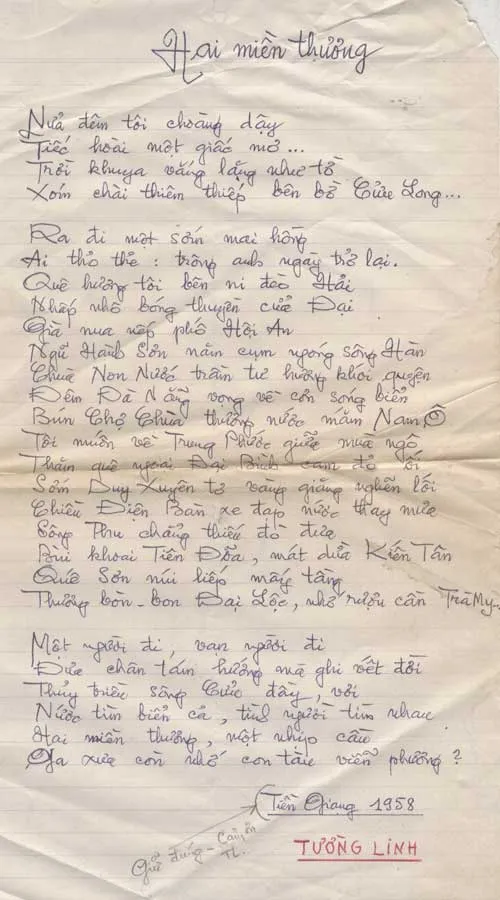 Hai miền thương
Nửa đêm tôi choàng dậy
Tiếc hoài một giấc mơ...
Trời khuya vắng lặng như tờ
Xóm chài thiêm thiếp bên bờ Cửu Long...
Ra đi một sớm mai hồng
Ai thỏ thẻ: trông anh ngày trở lại.
Quê hương tôi bên ni đèo Hải
Nhấp nhô bóng thuyền cửa Đại
Già nua nếp phố Hội An
Ngũ Hành Sơn năm cụm ngóng sông Hàn
Chùa Non Nước trầm tư hương khói quyện
Đêm Đà Nẵng vọng về cơn sóng biển
Bún Chợ Chùa thương nước mắm Nam Ô
Tôi muốn về Trung Phước giữa mùa ngô
Thăm quê ngoại Đại Bình cam đỏ ối
Sớm Duy Xuyên tơ vàng giăng nghẽn lối
Chiều Điện Bàn xe đạp nước thay mưa
Sông Thu chẳng thiếu đò đưa
Bùi khoai Tiên Đõa, mát dừa Kiến Tân
Quế Sơn núi liếp mây tầng
Thương bòn-bon Đại Lộc, nhớ rượu cần Trà My...
Một người đi, vạn người đi
Đưa chân tám hướng mà ghi vết đời
Thủy triều sông Cửu đầy, vơi
Nước tìm biển cả, tình người tìm nhau
Hai miền thương, một nhịp cầu
Ga xưa còn nhớ con tàu viễn phương?
Tiền Giang 1958
Giữ đúng - Cảm ơn
TL.
TƯỜNG LINH